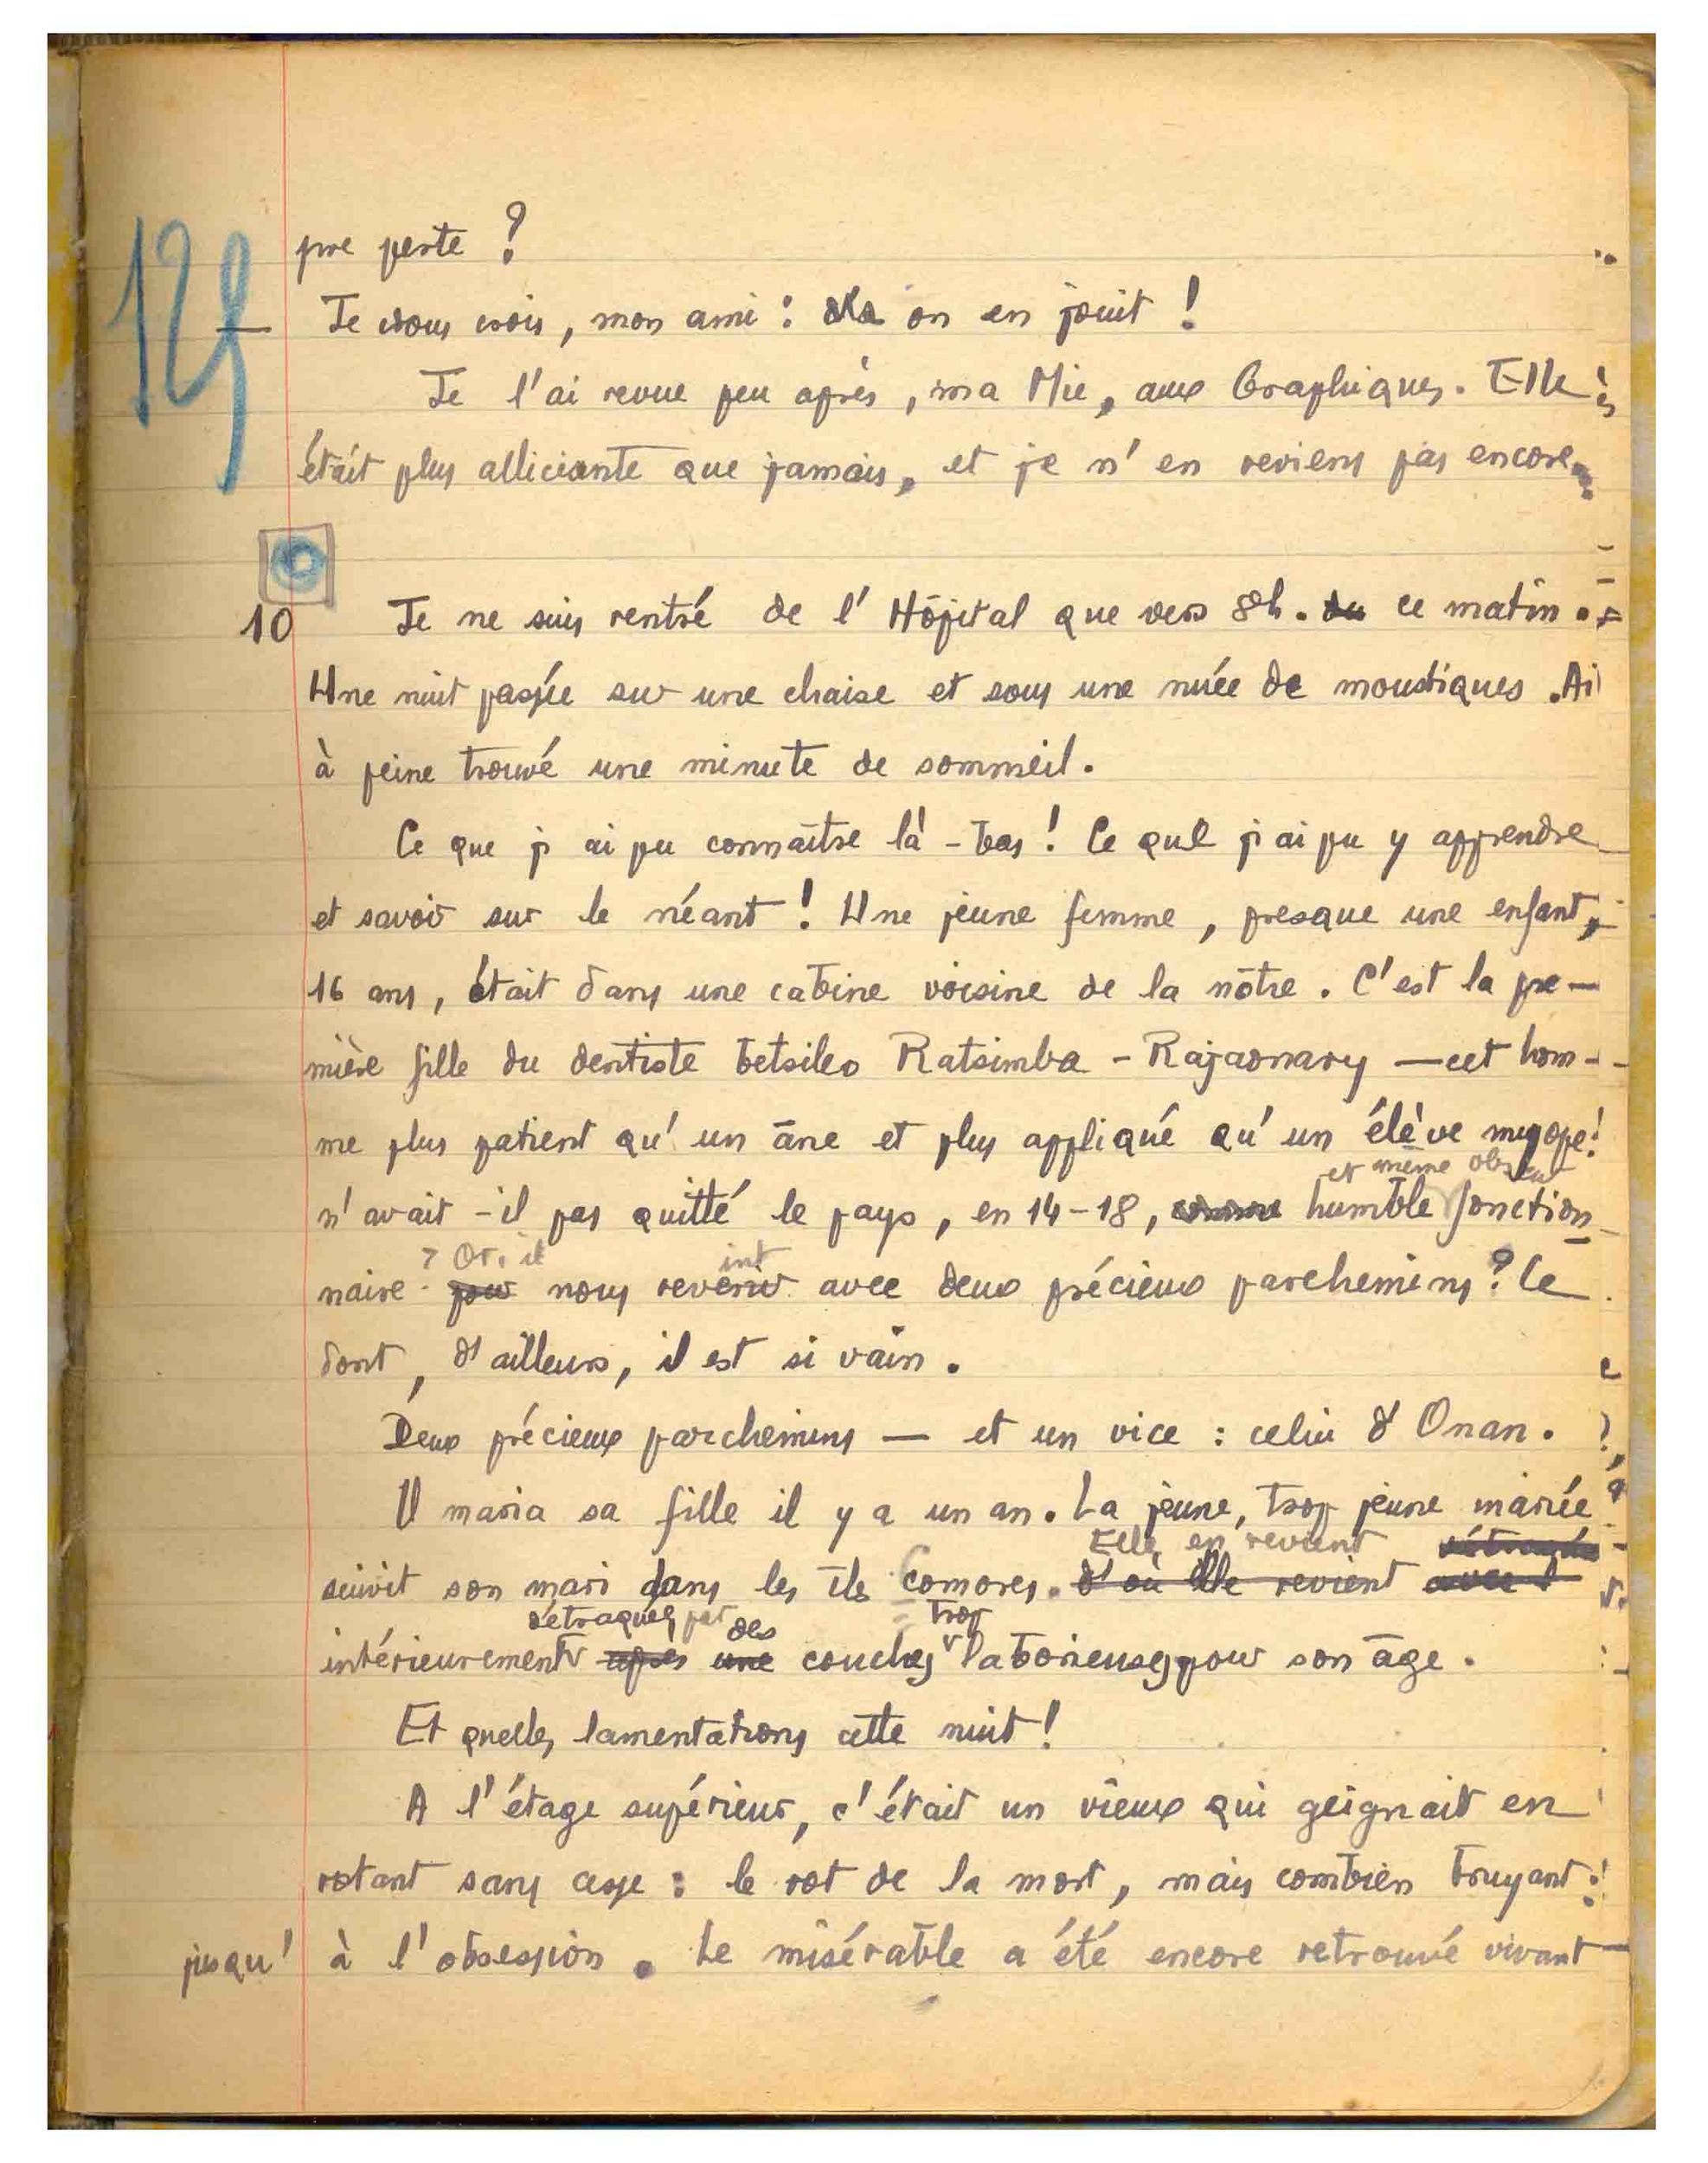 pre perte ?
— Je vous crois, mon ami : on en jouit !
Je l'ai revue peu après, ma Mie, aux Graphiques. Elle
était plus alliciante que jamais, et je n'en reviens pas encore.
10 Je ne suis rentré de l'Hôpital que vers 8h. du ce matin.
Une nuit passée sur une chaise et sous une nuée de moustiques. Ai
à peine trouvé une minute de sommeil.
Ce que j'ai pu connaître là-bas ! Ce que j'ai pu y apprendre
et savoir sur le néant ! Une jeune femme, presque une enfant,
16 ans, était dans une cabine voisine de la nôtre. C'est la pre-
mière fille du dentiste betsileo Ratsimba-Rajaonary — cet hom-
me plus patient qu'un âne et plus appliqué qu'un élève myope !
et même obscur
n'avait-il pas quitté le pays, en 14-18, comme humble fonction-
? Or, il int
naire pour nous revenir avec deux précieux parchemins ? Ce
dont, d'ailleurs, il est si vain.
Deux précieux parchemins — et un vice : celui d'Onan.
Il maria sa fille il y a un an. La jeune, trop jeune mariée
Elle en revient détraquée
suivit son mari dans les îles Comores. d'où elle revient avec
détraquée par des trop
intérieurement après une couches laborieuses pour son âge.
Et quelles lamentations cette nuit !
A l'étage supérieur, c'était un vieux qui geignait en
rotant sans cesse : le rot de la mort, mais combien bruyant :
jusqu'à l'obsession. Le misérable a été encore retrouvé vivant